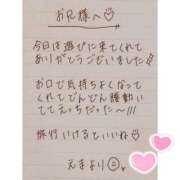 お兄様へ♡
今日は遊びに来てくれて
ありがとうございました
お口で気持ちよくなって
くれてどんどん腰動いて
てえっちだったー///
旅行いけるといいね♡
えまより☺